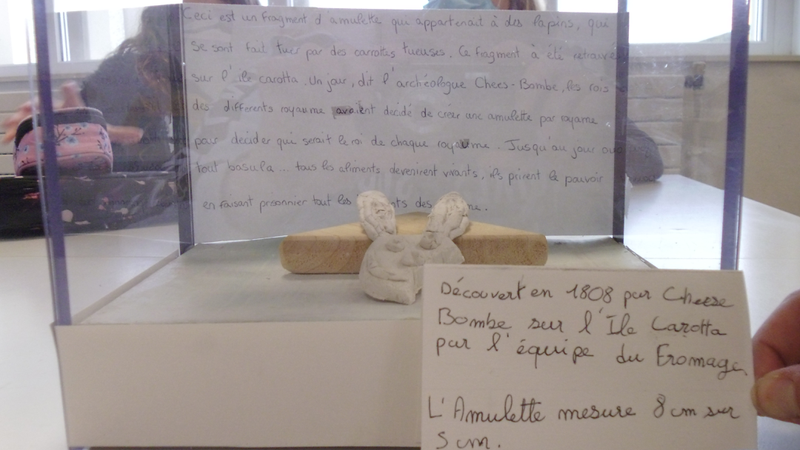 Ceci est un fragment d'amulette qui appartenait à des lapins, qui
se sont fait tuer par des carottes tueuses. Ce fragment à été retrouvé
sur l'île carotta. Un jour, dit l'archéologue Chees-Bombe, les rois
des différents royaume avaient décidé de créer une amulette par royaume
pour décider qui serait le roi de chaque royaume. Jusqu'au jour ou
tout bascula... tous les aliments devenirent vivants, ils prirent le pouvoir
en faisant prisonnier tout les nts des ne.
Découvert en 1808 par Cheese
Bombe sur l'Ile Carotta
par l'équipe du Fromage.
L'Amulette mesure 8 cm sur
5 cm.